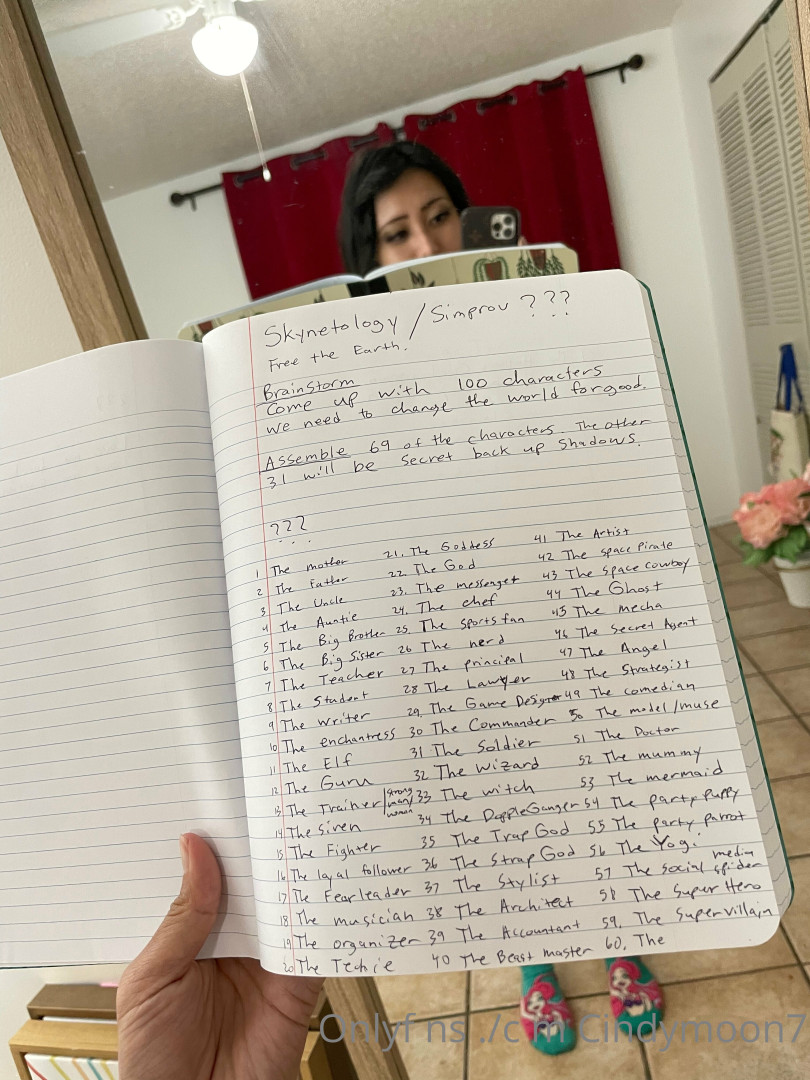 Skynetology / Simprov ???
Free the Earth.
Brainstorm
Come up with 100 characters
we need to change the world for good.
Assemble 69 of the characters. The other
31 will be secret back up shadows.
???
1 The mother
2 The Father
3 The Uncle
4 The Auntie
5 The Big Brother
6 The Big Sister
7 The Teacher
8 The Student
9 The writer
10 The enchantress
11 The Elf
12 The Guru
13 The Trainer/strong man/woman
14 The Siren
15 The Fighter
16 The loyal follower
17 The Fearleader
18 The musician
19 The organizer
20 The Techie
21. The Goddess
22. The God
23. The messenger
24. The chef
25. The sports fan
26 The nerd
27 The principal
28 The Lawyer
29. The Game Designer
30 The Commander
31 The Soldier
32 The Wizard
33 The witch
34 The DoppleGanger
35 The Trap God
36 The Strap God
37 The Stylist
38 The Architect
39 The Accountant
40 The Beast master
41 The Artist
42 The space Pirate
43 The space cowboy
44 The Ghost
45 The mecha
46 The Secret Agent
47 The Angel
48 The Strategist
49 The comedian
50 The model/muse
51 The Doctor
52 The mummy
53 The mermaid
54 The party puppy
55 The party parrot
56 The Yogi
57 The social media spider
58 The Super Hero
59. The Supervillain
60. The
Onlyf ns ./c m Cindymoon7